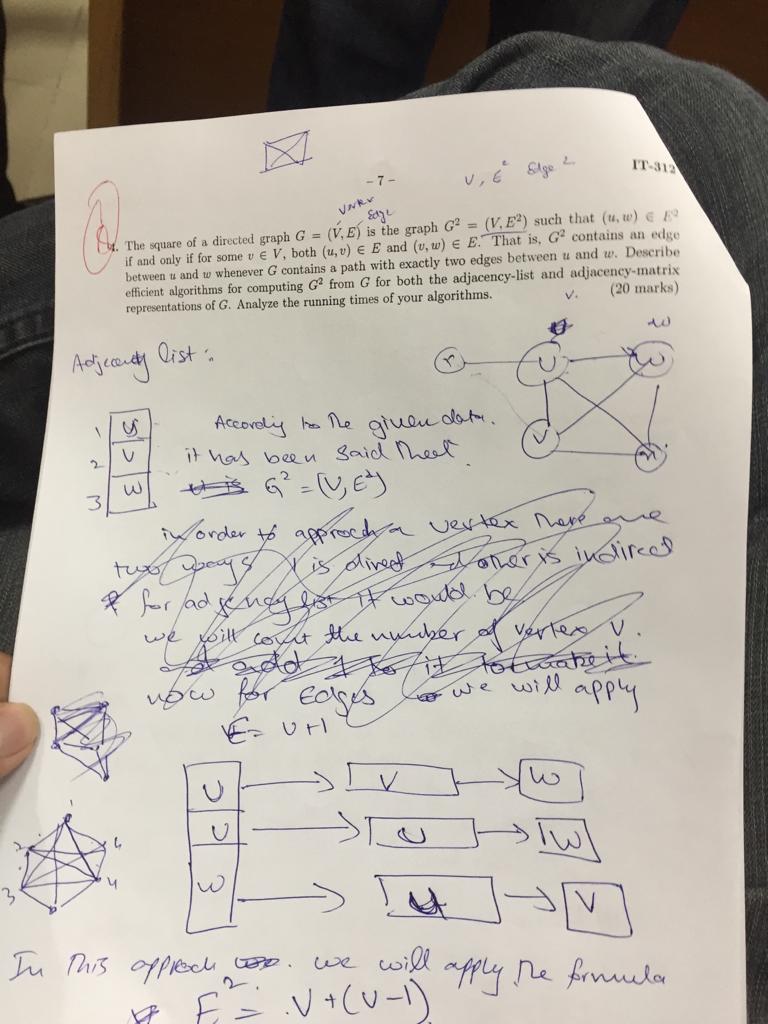 -7-
V, E² Edge 2
IT-312
vertex
Edge
4. The square of a directed graph G = (V, E) is the graph G² = (V, E²) such that (u, w) ∈ E²
if and only if for some v ∈ V, both (u, v) ∈ E and (v, w) ∈ E. That is, G² contains an edge
between u and w whenever G contains a path with exactly two edges between u and w. Describe
efficient algorithms for computing G² from G for both the adjacency-list and adjacency-matrix
representations of G. Analyze the running times of your algorithms. (20 marks)
V.
w
Adjecenty list :
r U W
V
1 U
2 V
3 W
According to the given data.
it has been said that
G² = (V, E²)
in order to approch a vertex there are
two ways 1 is direct and other is indirect
for adjency list it would be
we will count the number of vertex V.
add 1 to it to make it.
now for Edges we will apply
E = U+1
U V W
U U W
W U V
1
2 4
3 4
In this approch we will apply the formula
E² = V+(V-1)